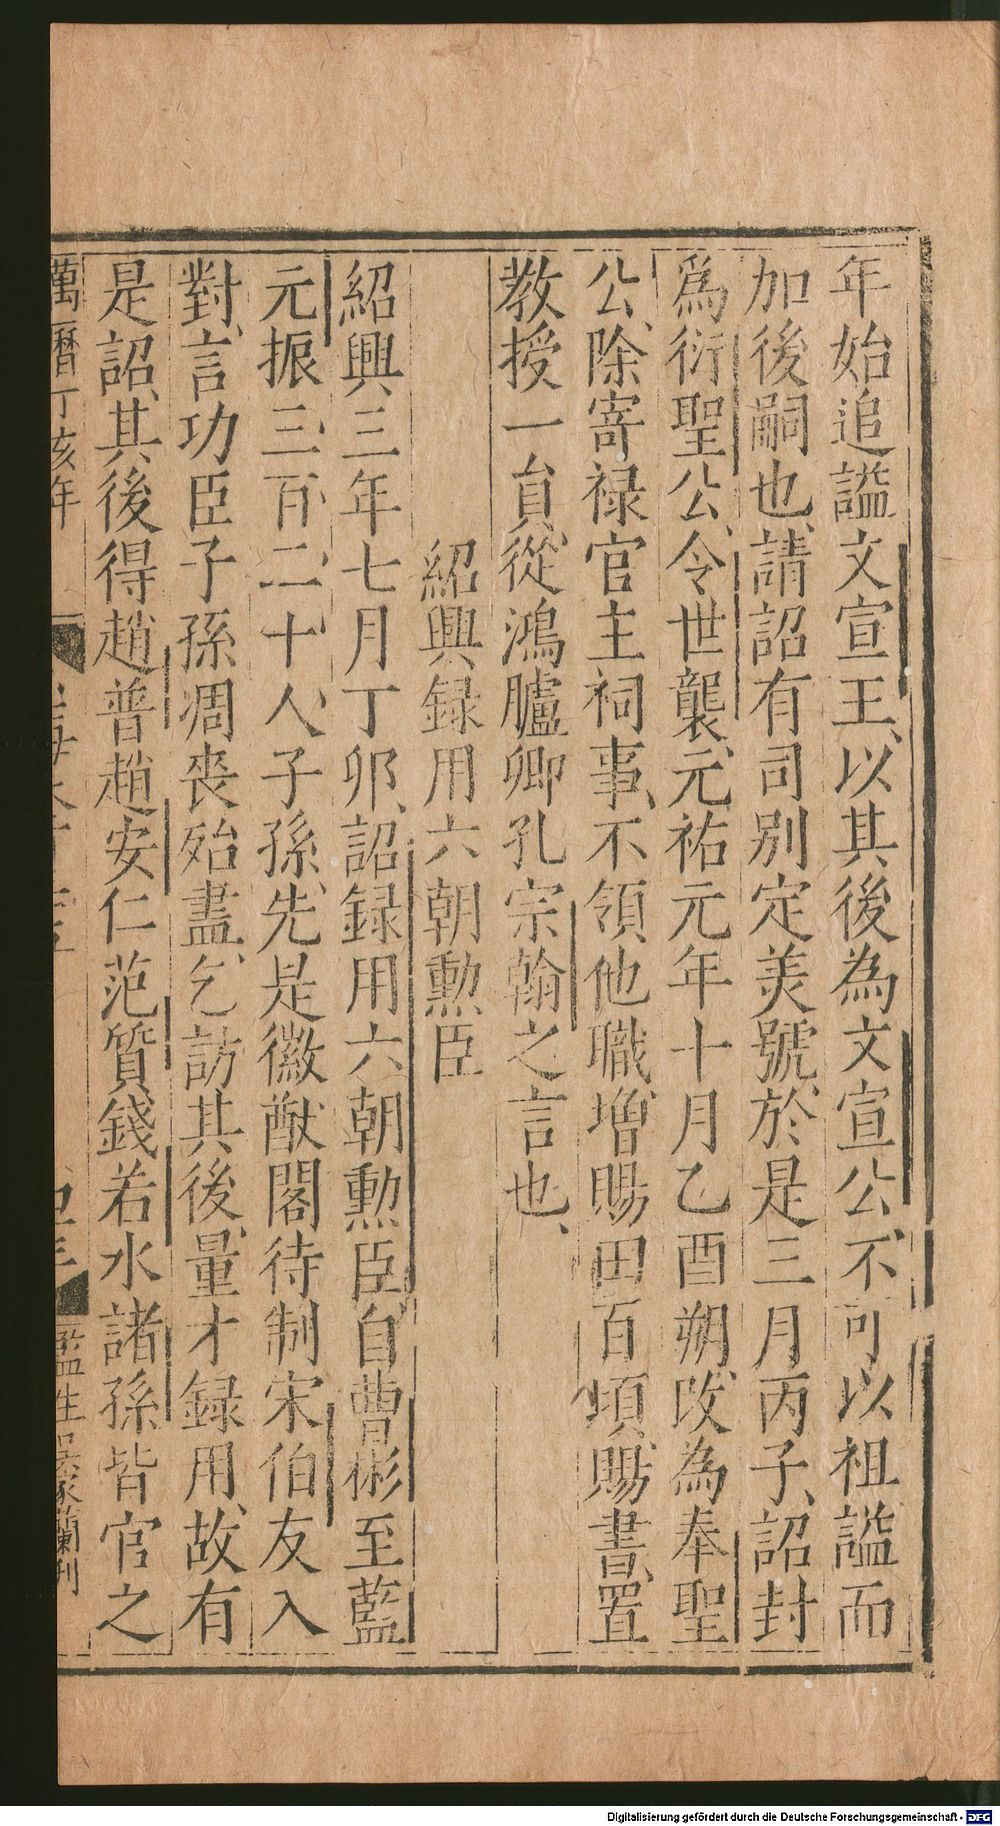 年始追謚文宣王、以其後為文宣公、不可以祖謚而
加後嗣也、請詔有司别定美號、於是三月丙子、詔封
爲衍聖公、令世襲、元祐元年十月乙酉朔、改為奉聖
公、除寄禄官主祠事、不領他職、増賜田百頃、賜書、置
教授一員、從鴻臚卿孔宗翰之言也、
紹興録用六朝勲臣
紹興三年七月丁卯、詔録用六朝勲臣、自曹彬至藍
元振三百二十人子孫、先是徽猷閣待制宋伯友入
對、言功臣子孫凋喪殆盡、乞訪其後、量才録用、故有
是詔、其後得趙普趙安仁范質錢若水諸孫皆官之
萬曆丁亥年
監生吳家蘭刊
Digitalisierung gefördert durch die Deutsche Forschungsgemeinschaft - DFG